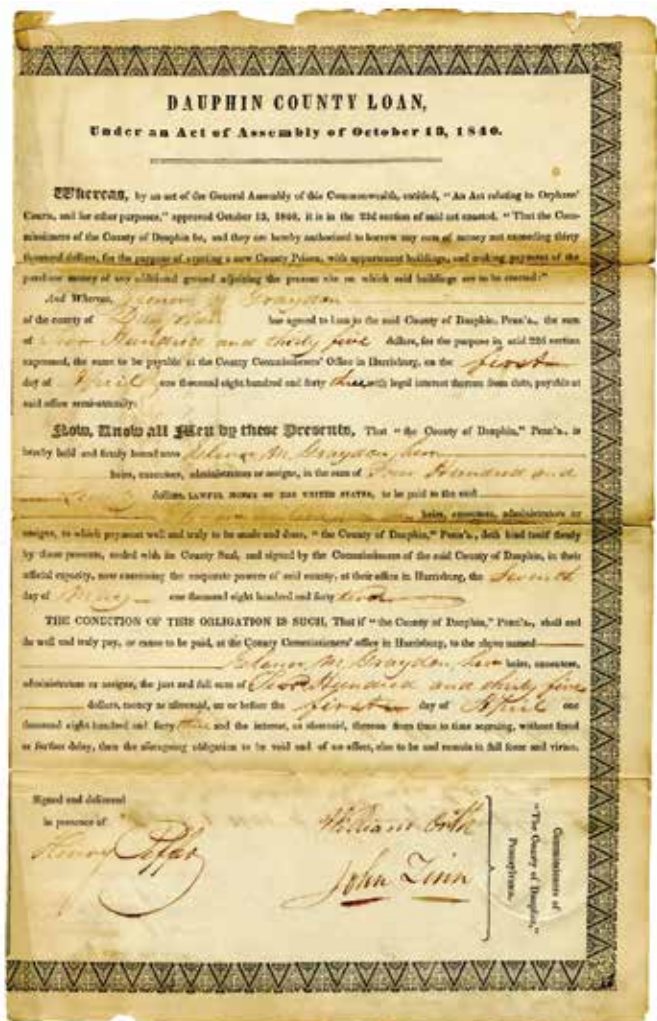 DAUPHIN COUNTY LOAN,
Under an Act of Assembly of October 13, 1840.
Whereas, by an act of the General Assembly of this Commonwealth, entitled, "An Act relating to Orphans'
Courts, and for other purposes," approved October 13, 1840, it is in the 22d section of said act enacted. "That the Com-
missioners of the County of Dauphin be, and they are hereby authorised to borrow any sum of money not exceeding thirty
thousand dollars, for the purpose of erecting a new County Prison, with appurtenant buildings, and making payment of the
purchase money of any additional ground adjoining the present site on which said buildings are to be erected:"
And Whereas, M Graydon
of the county of Dauphin has agreed to loan to the said County of Dauphin, Penn'a., the sum
of Two Hundred and thirty five dollars, for the purpose in said 22d section
expressed, the same to be payable at the County Commissioners' Office in Harrisburg, on the first
day of April one thousand eight hundred and forty three with legal interest thereon from date, payable at
said office semi-annually.
Now, Know all Men by these Presents, That "the County of Dauphin," Penn'a., is
hereby held and firmly bound unto M. Graydon, her
heirs, executors, administrators or assigns, in the sum of Four Hundred and
dollars, LAWFUL MONEY OF THE UNITED STATES, to be paid to the said
heirs, executors, administrators or
assigns, to which payment well and truly to be made and done, "the County of Dauphin," Penn'a., doth bind itself firmly
by these presents, sealed with its County Seal, and signed by the Commissioners of the said County of Dauphin, in their
official capacity, now exercising the corporate powers of said county, at their office in Harrisburg, the Seventh
day of May one thousand eight hundred and forty
THE CONDITION OF THIS OBLIGATION IS SUCH, That if "the County of Dauphin," Penn'a., shall and
do well and truly pay, or cause to be paid, at the County Commissioners' office in Harrisburg, to the above named
M. Graydon, her heirs, executors,
administrators or assigns, the just and full sum of Two Hundred and thirty five
dollars, money as aforesaid, on or before the first day of April one
thousand eight hundred and forty three and the interest, as aforesaid, thereon from time to time accruing, without fraud
or further delay, then the aforegoing obligation to be void and of no effect, else to be and remain in full force and virtue.
Signed and delivered
in presence of
Henry
William
John Zinn
Commissioners of
"The County of Dauphin,"
Pennsylvania.